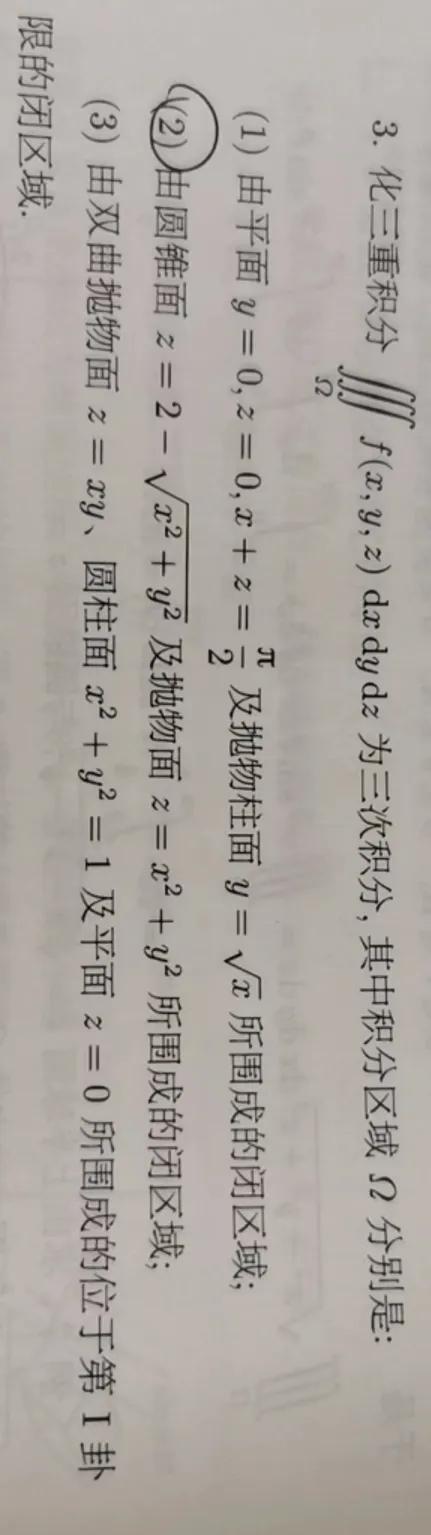 3. 化三重积分 ∭_Ω f(x, y, z) dx dy dz 为三次积分, 其中积分区域 Ω 分别是:
(1) 由平面 y = 0, z = 0, x + z = π/2 及抛物柱面 y = √x 所围成的闭区域;
(2) 由圆锥面 z = 2 − √(x² + y²) 及抛物面 z = x² + y² 所围成的闭区域;
(3) 由双曲抛物面 z = xy、圆柱面 x² + y² = 1 及平面 z = 0 所围成的位于第 I 卦
限的闭区域.